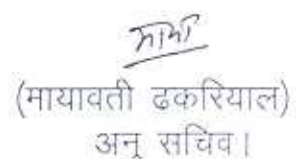 माया
(मायावती ढकरियाल)
अनु सचिव।